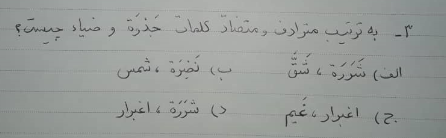 ۳- به ترتیب مترادف و متضادّ کلمات جَذْوَة و ضیاء چیست؟
الف) شَرَرَة ، شَقَّ    ب) نَضِرَة ، شمس
ج) اغبرار ، غَیم    د) شَرَرَة ، اغبرار